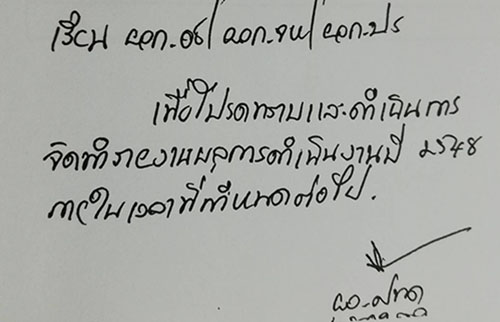 เรียน ผอก.อช/ผอก.จห/ผอก.ปร
เพื่อโปรดทราบและดำเนินการ
จัดทำรายงานผลการดำเนินงานปี 2548
ภายในเวลาที่กำหนดต่อไป.